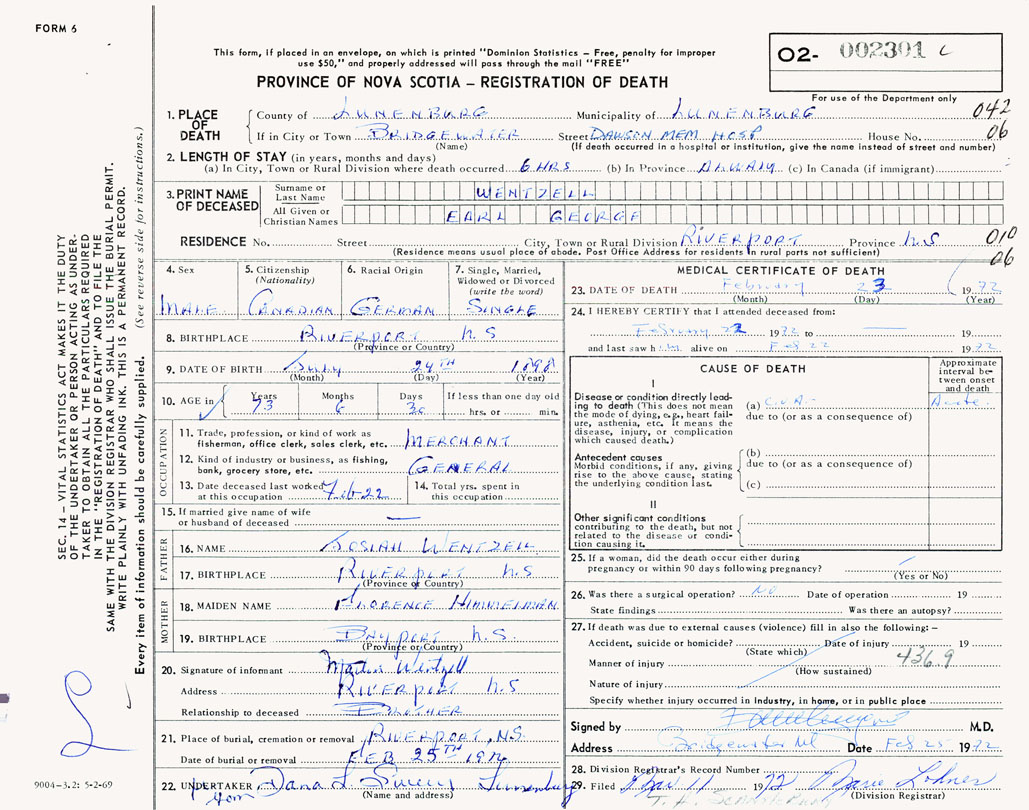 FORM 6
This form, if placed in an envelope, on which is printed "Dominion Statistics – Free, penalty for improper
use $50," and properly addressed will pass through the mail "FREE"
PROVINCE OF NOVA SCOTIA – REGISTRATION OF DEATH
O2- 002301 C
For use of the Department only
SEC. 14 – VITAL STATISTICS ACT MAKES IT THE DUTY
OF THE UNDERTAKER OR PERSON ACTING AS UNDER-
TAKER TO OBTAIN ALL THE PARTICULARS REQUIRED
IN THE "REGISTRATION OF DEATH" AND TO FILE THE
SAME WITH THE DIVISION REGISTRAR WHO SHALL ISSUE THE BURIAL PERMIT.
WRITE PLAINLY WITH UNFADING INK. THIS IS A PERMANENT RECORD.
Every item of information should be carefully supplied. (See reverse side for instructions.)
1. PLACE OF DEATH
County of LUNENBURG Municipality of LUNENBURG 042
If in City or Town BRIDGEWATER Street DAWSON MEM HOSP House No. 06
(Name) (If death occurred in a hospital or institution, give the name instead of street and number)
2. LENGTH OF STAY (in years, months and days)
(a) In City, Town or Rural Division where death occurred 6 HRS (b) In Province ALWAY (c) In Canada (if immigrant)
3. PRINT NAME OF DECEASED
Surname or Last Name WENTZELL
All Given or Christian Names EARL GEORGE
RESIDENCE No. Street City, Town or Rural Division RIVERPORT Province N.S 010
(Residence means usual place of abode. Post Office Address for residents in rural parts not sufficient) 06
4. Sex
MALE
5. Citizenship (Nationality)
CANADIAN
6. Racial Origin
GERMAN
7. Single, Married, Widowed or Divorced (write the word)
SINGLE
8. BIRTHPLACE RIVERPORT N S
(Province or Country)
9. DATE OF BIRTH July 24TH 1898
(Month) (Day) (Year)
10. AGE in Years 73 Months 6 Days 30 If less than one day old
hrs. or min.
OCCUPATION
11. Trade, profession, or kind of work as
fisherman, office clerk, sales clerk, etc. MERCHANT
12. Kind of industry or business, as fishing,
bank, grocery store, etc. GENERAL
13. Date deceased last worked
at this occupation Feb 22
14. Total yrs. spent in
this occupation
15. If married give name of wife
or husband of deceased —
FATHER
16. NAME JOSIAH WENTZELL
17. BIRTHPLACE RIVERPORT N.S
(Province or Country)
MOTHER
18. MAIDEN NAME FLORENCE HIMMELMAN
19. BIRTHPLACE BAYPORT N.S.
(Province or Country)
20. Signature of informant Wentzell
Address RIVERPORT N.S
Relationship to deceased BROTHER
21. Place of burial, cremation or removal RIVERPORT, N.S.
Date of burial or removal FEB 25TH 1972
22. UNDERTAKER Dana L. Lunenburg
(Name and address)
MEDICAL CERTIFICATE OF DEATH
23. DATE OF DEATH February 23 1972
(Month) (Day) (Year)
24. I HEREBY CERTIFY that I attended deceased from:
February 22 1972 to — 19
and last saw him alive on Feb 22 1972
CAUSE OF DEATH
Approximate interval between onset and death
I
Disease or condition directly lead-
ing to death (This does not mean
the mode of dying, e.g., heart fail-
ure, asthenia, etc. It means the
disease, injury, or complication
which caused death.)
(a) C.V.A. Acute
due to (or as a consequence of)
Antecedent causes
Morbid conditions, if any, giving
rise to the above cause, stating
the underlying condition last.
(b)
due to (or as a consequence of)
(c)
II
Other significant conditions
contributing to the death, but not
related to the disease or condi-
tion causing it.
25. If a woman, did the death occur either during
pregnancy or within 90 days following pregnancy?
(Yes or No)
26. Was there a surgical operation? NO Date of operation 19
State findings Was there an autopsy?
27. If death was due to external causes (violence) fill in also the following: –
Accident, suicide or homicide? Date of injury 19
(State which)
Manner of injury 436.9
(How sustained)
Nature of injury
Specify whether injury occurred in industry, in home, or in public place
Signed by M.D.
Address Bridgewater NS Date Feb 25 1972
28. Division Registrar's Record Number
29. Filed Mar 11 1972 Marie Lohnes
(Division Registrar)
9004-3.2: 5-2-69